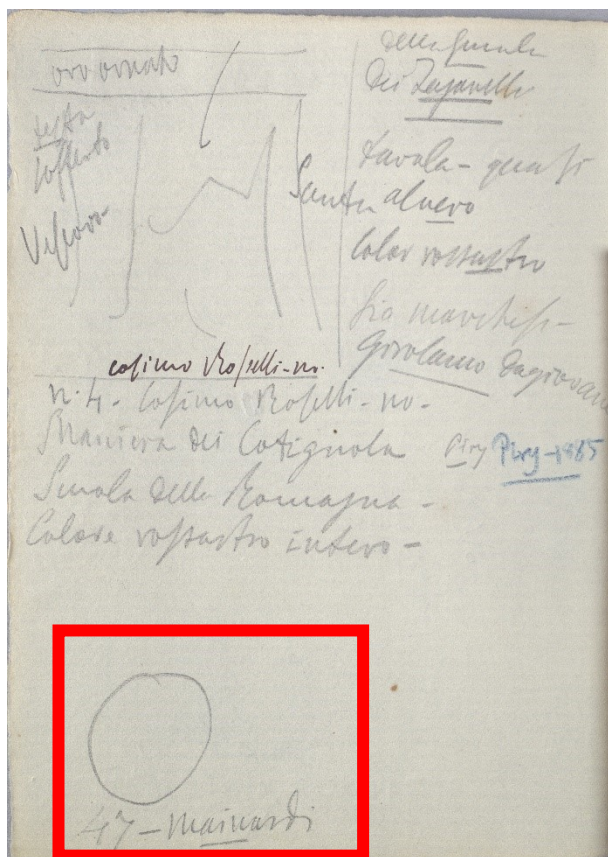 oro ornato
testa
sofferto
Vescovo
della scuola
dei Zaganelli
tavola - quasi
Santa al vero
Color rossastro
Sia marchesi -
Girolamo da giovane
cosimo Roselli - no.
n. 4 - Cosimo Roselli - no -
Maniera dei Cotignola
Piry - 1885
Scuola della Romagna -
Colore rossastro intero -
47 - Mainardi